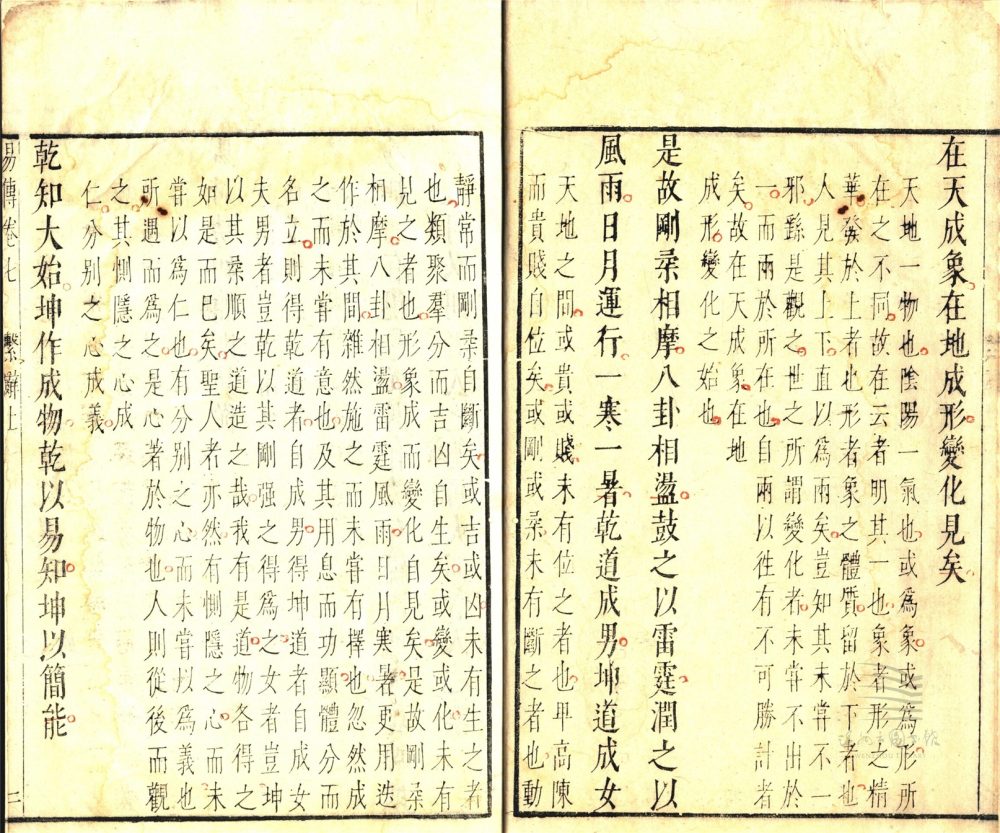 在天成象在地成形變化見矣
天地一物也陰陽一氣也或爲象或爲形所
在之不同故在云者明其一也象者形之精
華發於上者也形者象之體質留於下者也
人見其上下直以爲兩矣豈知其未嘗不一
邪繇是觀之世之所謂變化者未嘗不出於
一而兩於所在也自兩以往有不可勝計者
矣故在天成象在地
成形變化之始也
是故剛柔相摩八卦相盪鼓之以雷霆潤之以
風雨日月運行一寒一暑乾道成男坤道成女
天地之間或貴或賤未有位之者也卑高陳
而貴賤自位矣或剛或柔未有斷之者也動
靜常而剛柔自斷矣或吉或凶未有生之者
也類聚羣分而吉凶自生矣或變或化未有
見之者也形象成而變化自見矣是故剛柔
相摩八卦相盪雷霆風雨日月寒暑更用迭
作於其間雜然施之而未嘗有擇也忽然成
之而未嘗有意也及其用息而功顯體分而
名立則得乾道者自成男得坤道者自成女
夫男者豈乾以其剛强之得爲之女者豈坤
以其柔順之道造之哉我有是道物各得之
如是而已矣聖人者亦然有惻隱之心而未
嘗以爲仁也有分别之心而未嘗以爲義也
所遇而爲之是心著於物也人則從後而觀
之其惻隱之心成
仁分别之心成義
乾知大始坤作成物乾以易知坤以簡能
易傳卷七 繫辭上 二